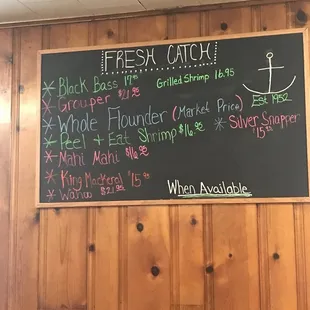 FRESH CATCH
Black Bass 17.95
Grilled Shrimp 16.95
Grouper $21.95
Est 1952
Whole Flounder (Market Price)
Peel + Eat Shrimp $16.95
Silver Snapper
$15.95
Mahi Mahi $16.95
King Mackerel $15.95
Wahoo $21.95
When Available